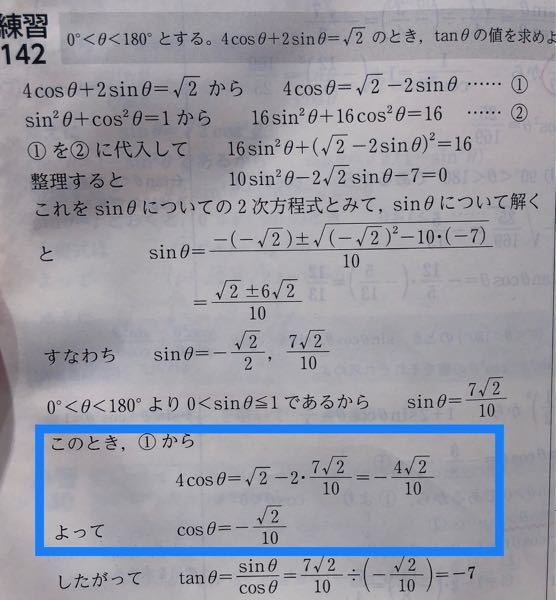 練習
142
0°<θ<180° とする。4cosθ+2sinθ=√2 のとき，tanθ の値を求めよ
4cosθ+2sinθ=√2 から　4cosθ=√2−2sinθ ……①
sin²θ+cos²θ=1 から　16sin²θ+16cos²θ=16 ……②
①を②に代入して　16sin²θ+(√2−2sinθ)²=16
整理すると　10sin²θ−2√2 sinθ−7=0
これを sinθ についての2次方程式とみて，sinθ について解く
と　sinθ=(−(−√2)±√((−√2)²−10·(−7)))/10
=(√2±6√2)/10
すなわち　sinθ=−√2/2，7√2/10
0°<θ<180° より 0<sinθ≦1 であるから　sinθ=7√2/10
このとき，①から
4cosθ=√2−2·7√2/10=−4√2/10
よって　cosθ=−√2/10
したがって　tanθ=sinθ/cosθ=7√2/10÷(−√2/10)=−7